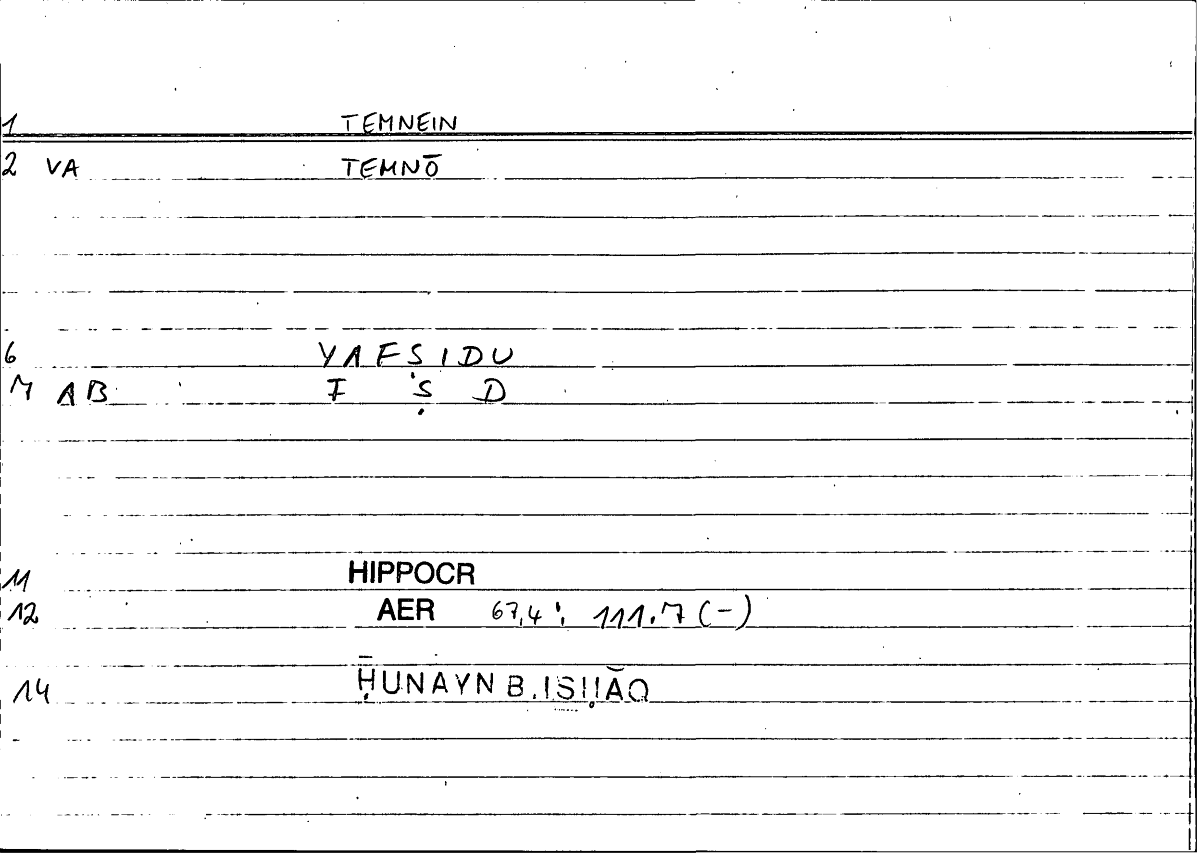 1 TEMNEIN
2 VA TEMNŌ
6 YAFṢIDU
7 AB F Ṣ D
11 HIPPOCR
12 AER 67,4 : 111.7 (-)
14 ḤUNAYN B. ISḤĀQ